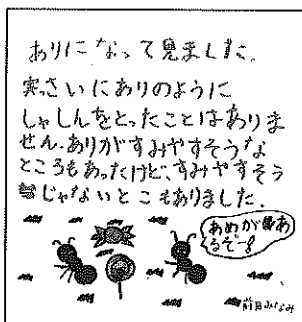 ありになって見ました。
実さいにありのように
しゃしんをとったことはありま
せん。ありがすみやすそうな
ところもあったけど、すみやすそう
じゃないとこもありました。
あめがあ
るぞー!
前田みなみ